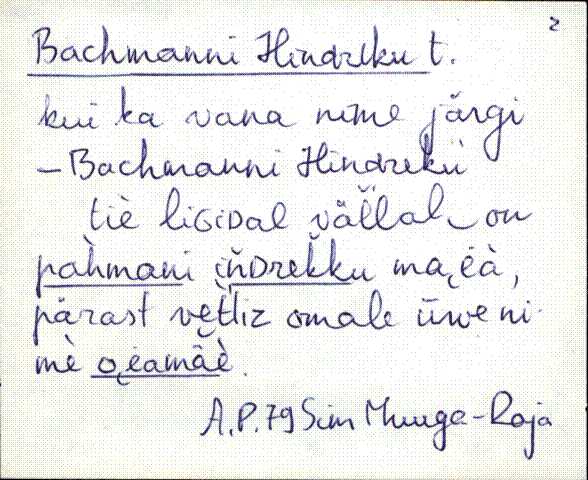 2
Bachmanni Hindreku t.
kui ka vana nime järgi
– Bachmanni Hindreku
tiè ligidal vällal on
pàhmani iňdrekku
pärast vetliz omale üwe ni-
mè
A.P. 79 Sim Muuga-Roja